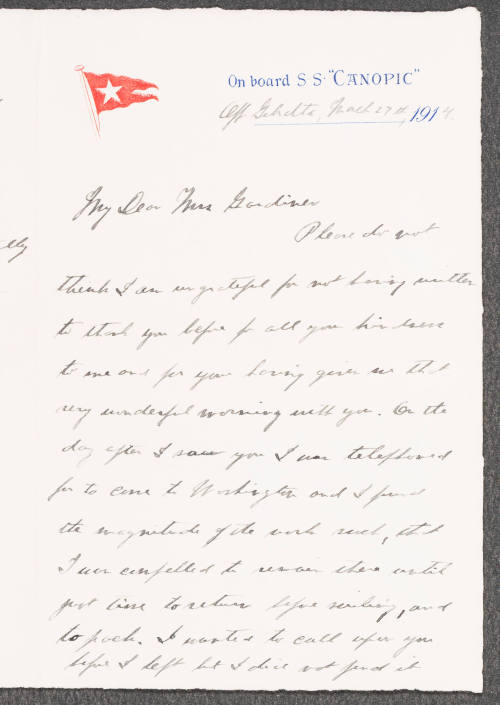 On board S S. "CANOPIC"
Off Gibralta, March 27th, 1914.
My Dear Mrs Gardiner
Please do not
lly
think I am ungrateful for not having written
to thank you before for all your kindness
to me and for your having given us that
very wonderful morning with you. On the
day after I saw you I was telephoned
for to come to Washington and I found
the magnitude of the work such, that
I was compelled to remain there until
just time to return before sailing, and
to pack. I wanted to call upon you
before I left but I did not find it